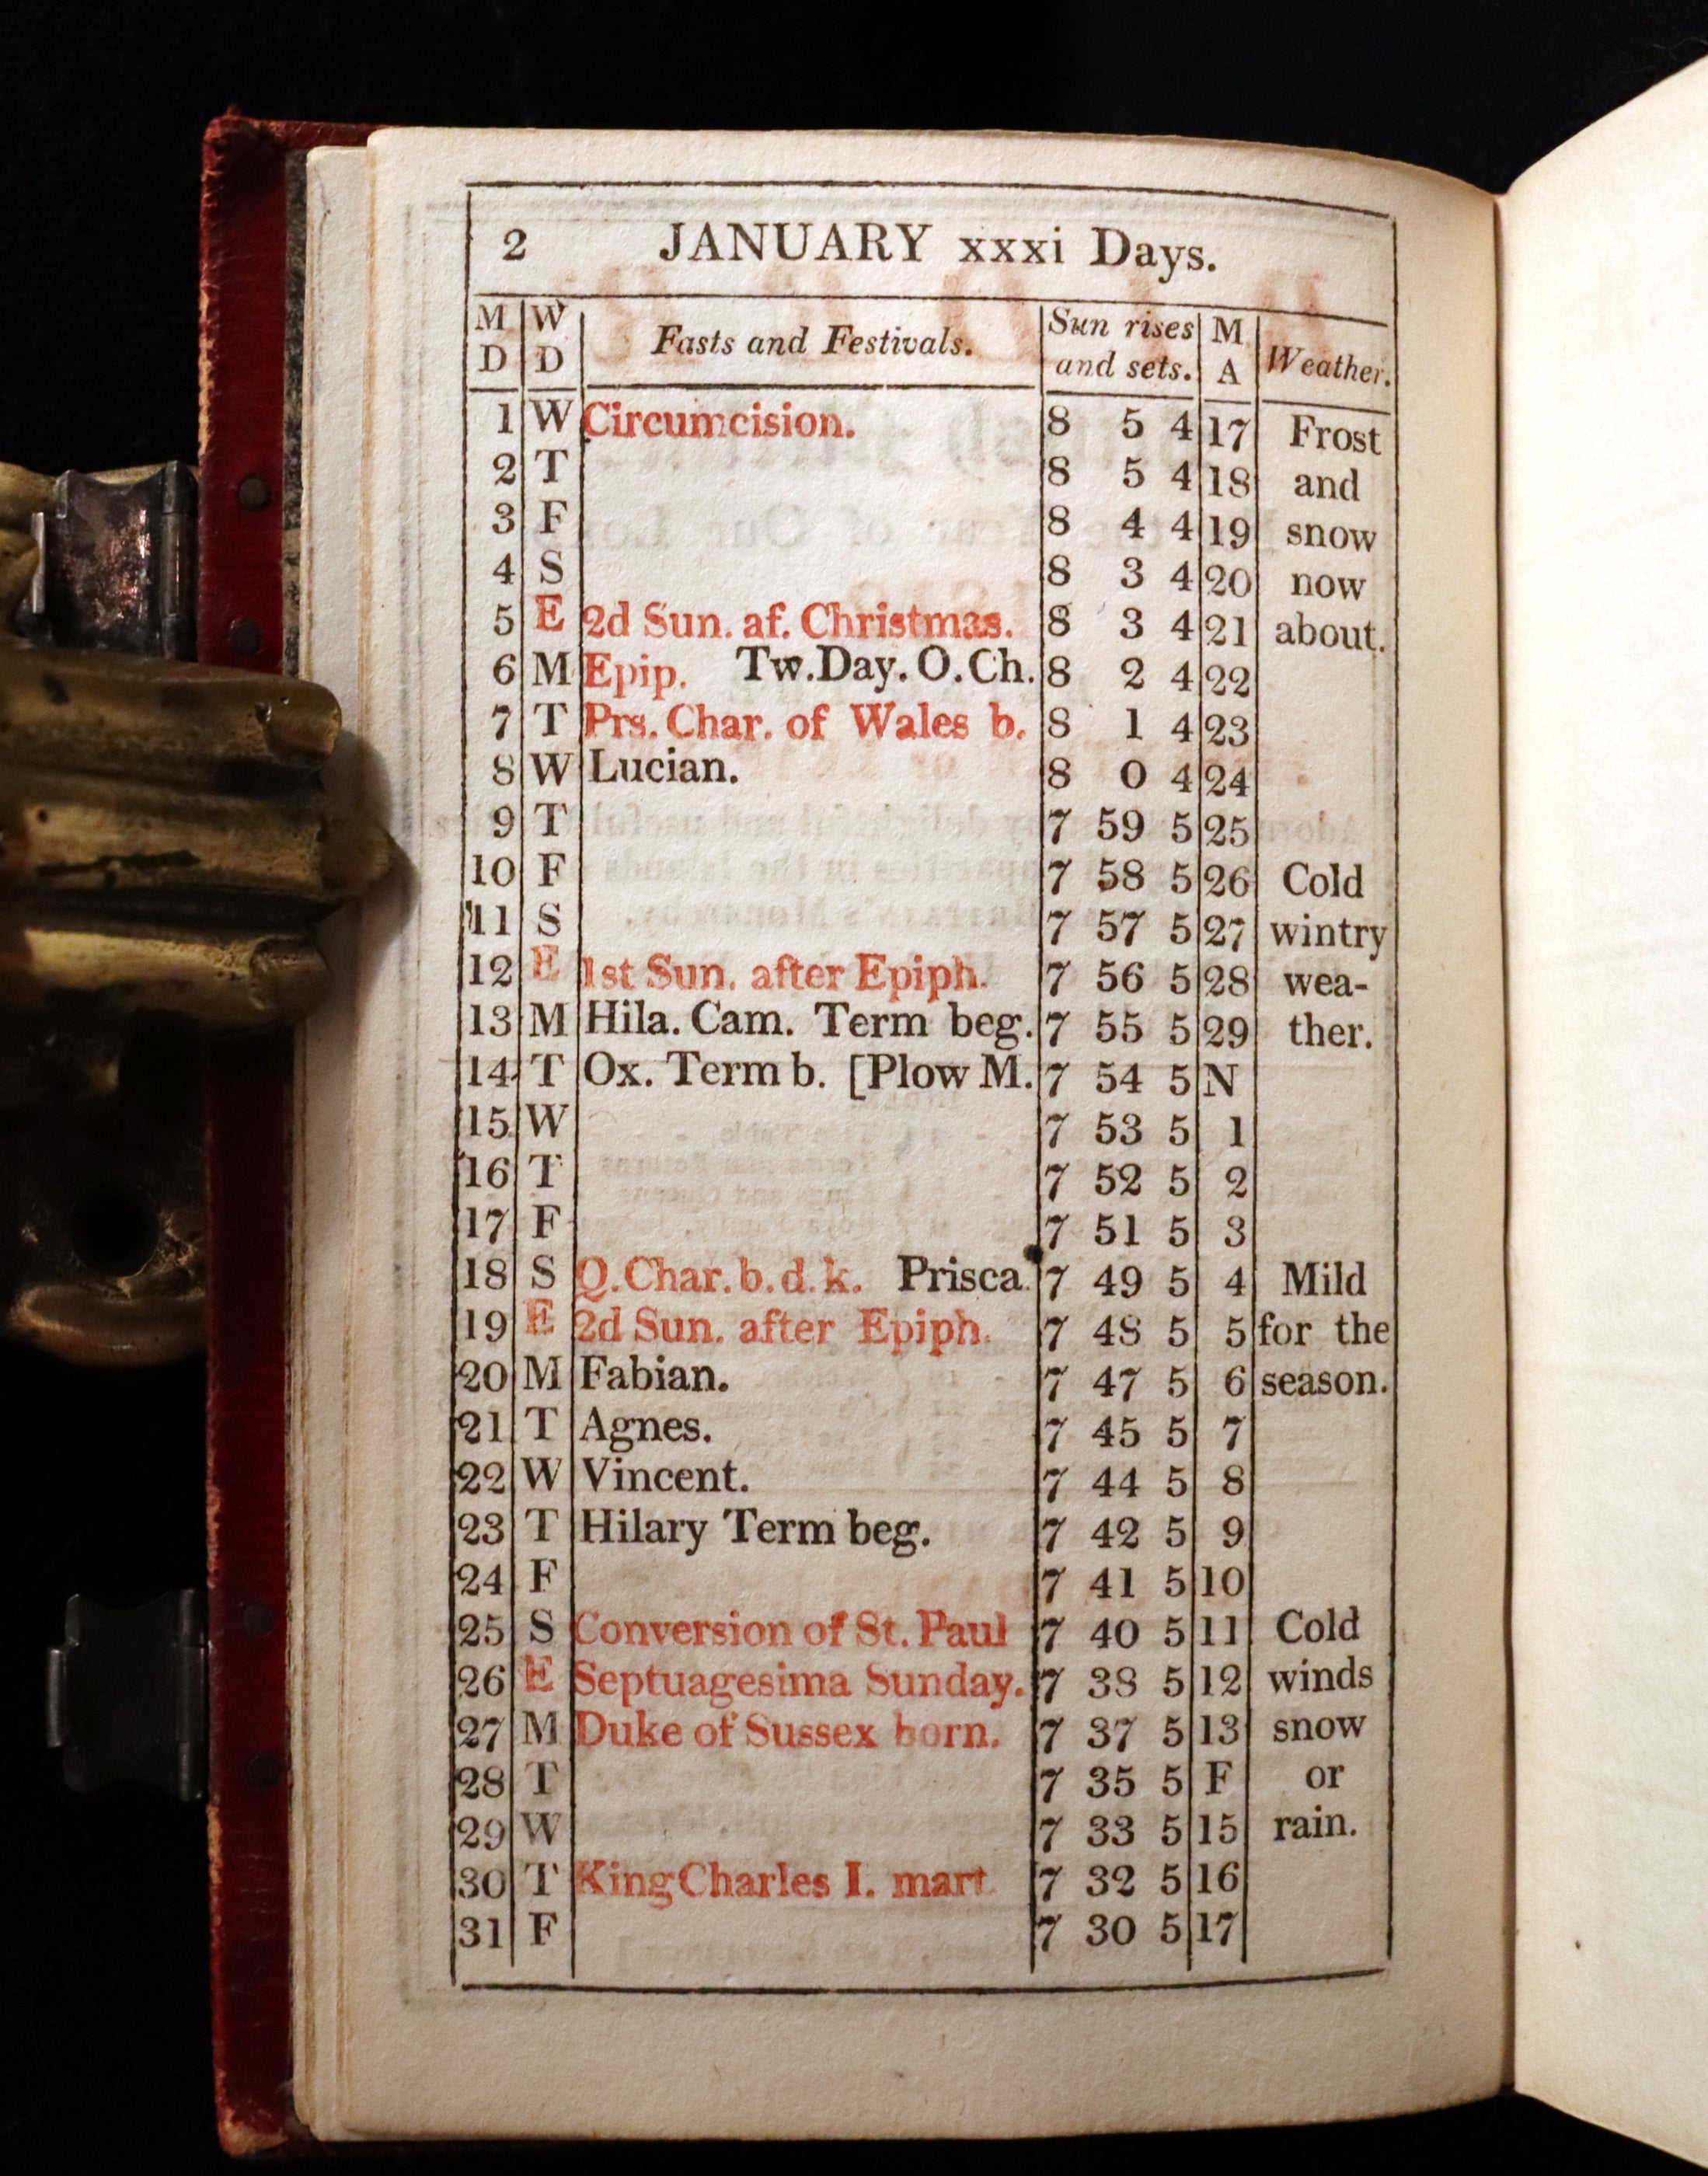 2 JANUARY xxxi Days.
M D W D Fasts and Festivals. Sun rises and sets. M A Weather.
1 W Circumcision. 8 5 4 17 Frost
2 T 8 5 4 18 and
3 F 8 4 4 19 snow
4 S 8 3 4 20 now
5 E 2d Sun. af. Christmas. 8 3 4 21 about.
6 M Epip. Tw.Day. O.Ch. 8 2 4 22
7 T Prs. Char. of Wales b. 8 1 4 23
8 W Lucian. 8 0 4 24
9 T 7 59 5 25
10 F 7 58 5 26 Cold
11 S 7 57 5 27 wintry
12 E 1st Sun. after Epiph. 7 56 5 28 wea-
13 M Hila. Cam. Term beg. 7 55 5 29 ther.
14 T Ox. Term b. [Plow M. 7 54 5 N
15 W 7 53 5 1
16 T 7 52 5 2
17 F 7 51 5 3
18 S Q. Char. b. d. k. Prisca. 7 49 5 4 Mild
19 E 2d Sun. after Epiph. 7 48 5 5 for the
20 M Fabian. 7 47 5 6 season.
21 T Agnes. 7 45 5 7
22 W Vincent. 7 44 5 8
23 T Hilary Term beg. 7 42 5 9
24 F 7 41 5 10
25 S Conversion of St. Paul 7 40 5 11 Cold
26 E Septuagesima Sunday. 7 38 5 12 winds
27 M Duke of Sussex born. 7 37 5 13 snow
28 T 7 35 5 F or
29 W 7 33 5 15 rain.
30 T King Charles I. mart. 7 32 5 16
31 F 7 30 5 17